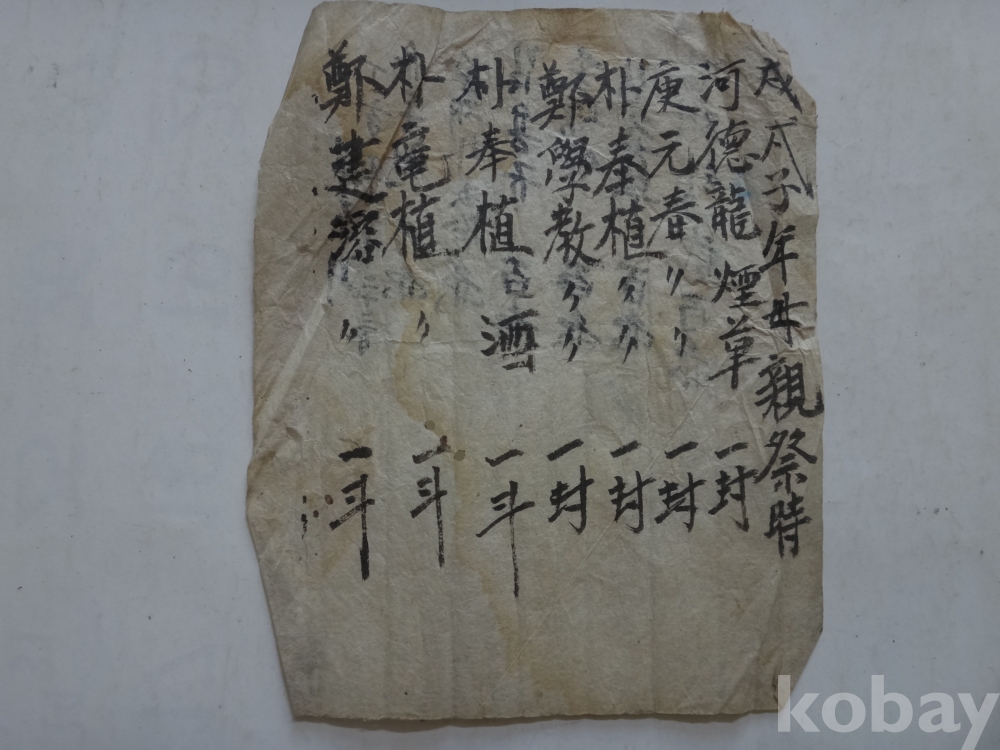 戊子年母親祭時
河德龍 煙草 一封
庚元奉 〃 〃 一封
朴奉植 〃 〃 一封
鄭學教 〃 〃 一封
朴奉植 酒 一斗
朴竜植 〃 一斗
鄭 〃 一斗
kobay